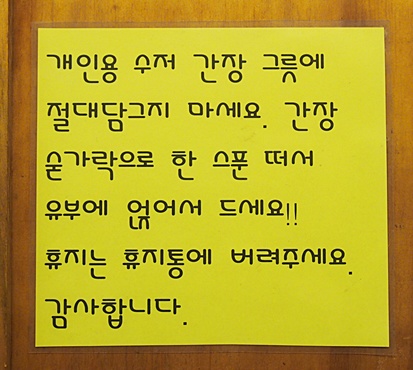 개인용 수저 간장 그릇에
절대담그지 마세요. 간장
숟가락으로 한 스푼 떠서
유부에 얹어서 드세요!!
휴지는 휴지통에 버려주세요.
감사합니다.